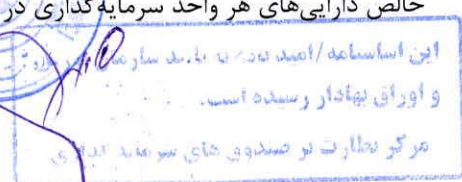 خالص دارایی‌های هر واحد سرمایه‌گذاری در
این اساسنامه/امید نامه به تایید سازمان بورس
و اوراق بهادار رسیده است.
مرکز نظارت بر صندوق های سرمایه گذاری